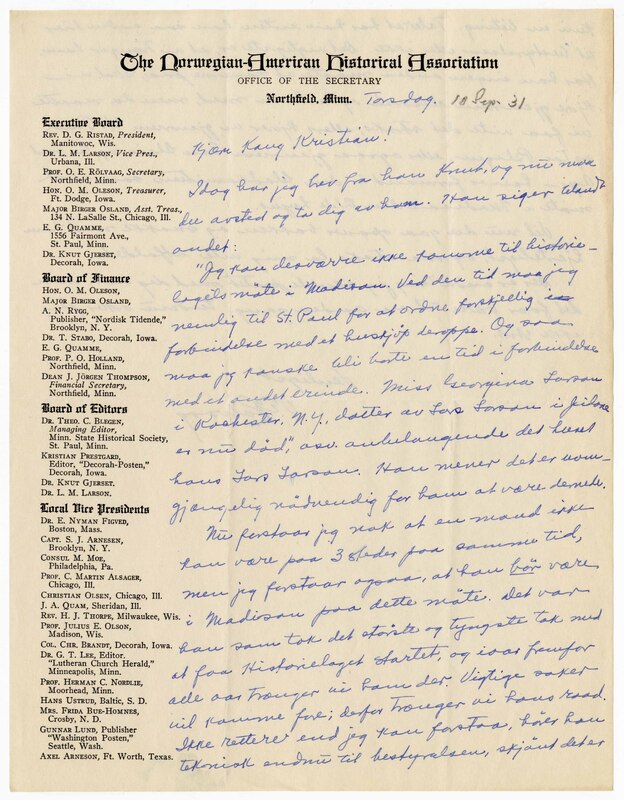 The Norwegian-American Historical Association
OFFICE OF THE SECRETARY
Northfield, Minn. Torsdag. 10 Sep. 31
Executive Board
REV. D. G. RISTAD, President,
Manitowoc, Wis.
DR. L. M. LARSON, Vice Pres.,
Urbana, Ill.
PROF. O. E. RÖLVAAG, Secretary,
Northfield, Minn.
HON. O. M. OLESON, Treasurer,
Ft. Dodge, Iowa.
MAJOR BIRGER OSLAND, Asst. Treas.,
134 N. LaSalle St., Chicago, Ill.
E. G. QUAMME,
1556 Fairmont Ave.,
St. Paul, Minn.
DR. KNUT GJERSET,
Decorah, Iowa.
Board of Finance
HON. O. M. OLESON,
MAJOR BIRGER OSLAND,
A. N. RYGG,
Publisher, "Nordisk Tidende,"
Brooklyn, N. Y.
DR. T. STABO, Decorah, Iowa.
E. G. QUAMME,
PROF. P. O. HOLLAND,
Northfield, Minn.
DEAN J. JÖRGEN THOMPSON,
Financial Secretary,
Northfield, Minn.
Board of Editors
DR. THEO. C. BLEGEN,
Managing Editor,
Minn. State Historical Society,
St. Paul, Minn.
KRISTIAN PRESTGARD,
Editor, "Decorah-Posten,"
Decorah, Iowa.
DR. KNUT GJERSET.
DR. L. M. LARSON.
Local Vice Presidents
DR. E. NYMAN FIGVED,
Boston, Mass.
CAPT. S. J. ARNESEN,
Brooklyn, N. Y.
CONSUL M. MOE,
Philadelphia, Pa.
PROF. C. MARTIN ALSAGER,
Chicago, Ill.
CHRISTIAN OLSEN, Chicago, Ill.
J. A. QUAM, Sheridan, Ill.
REV. H. J. THORPE, Milwaukee, Wis.
PROF. JULIUS E. OLSON,
Madison, Wis.
COL. CHR. BRANDT, Decorah, Iowa.
DR. G. T. LEE, Editor,
"Lutheran Church Herald,"
Minneapolis, Minn.
PROF. HERMAN C. NORDLIE,
Moorhead, Minn.
HANS USTRUD, Baltic, S. D.
MRS. FRIDA BUE-HOMNES,
Crosby, N. D.
GUNNAR LUND, Publisher
"Washington Posten,"
Seattle, Wash.
AXEL ARNESON, Ft. Worth, Texas.
Kjære Kong Kristian!
Idag har jeg brev fra han Knut, og nu maa
du avsted og ta dig av ham. Han siger blandt
andet:
"Jeg kan desværre ikke komme til historie-
lagets møte i Madison. Ved den tid maa jeg
nemlig til St. Paul for at ordne forskjellig i
forbindelse med et huskjøp deroppe. Og saa
maa jeg kanske bli borte en tid i forbindelse
med et andet ærende. Miss Georgina Larson
i Rochester, N.Y., datter av Lars Larson i
er nu død," osv. anbelangende det huset
hans Lars Larson. Han mener det er uom-
gjængelig nødvendig for ham at være dernede.
Nu forstaar jeg nok at en mand ikke
kan være paa 3 steder paa samme tid,
men jeg forstaar ogsaa, at han bør være
i Madison paa dette møte. Det var
han som tok det største og tyngste tak med
at faa Historielaget startet, og iaar fremfor
alle aar trænger vi ham der. Vigtige saker
vil komme fore; derfor trænger vi hans raad.
Ikke rettere end jeg kan forstaa, hører han
teknisk endnu til bestyrelsen, skjønt det er